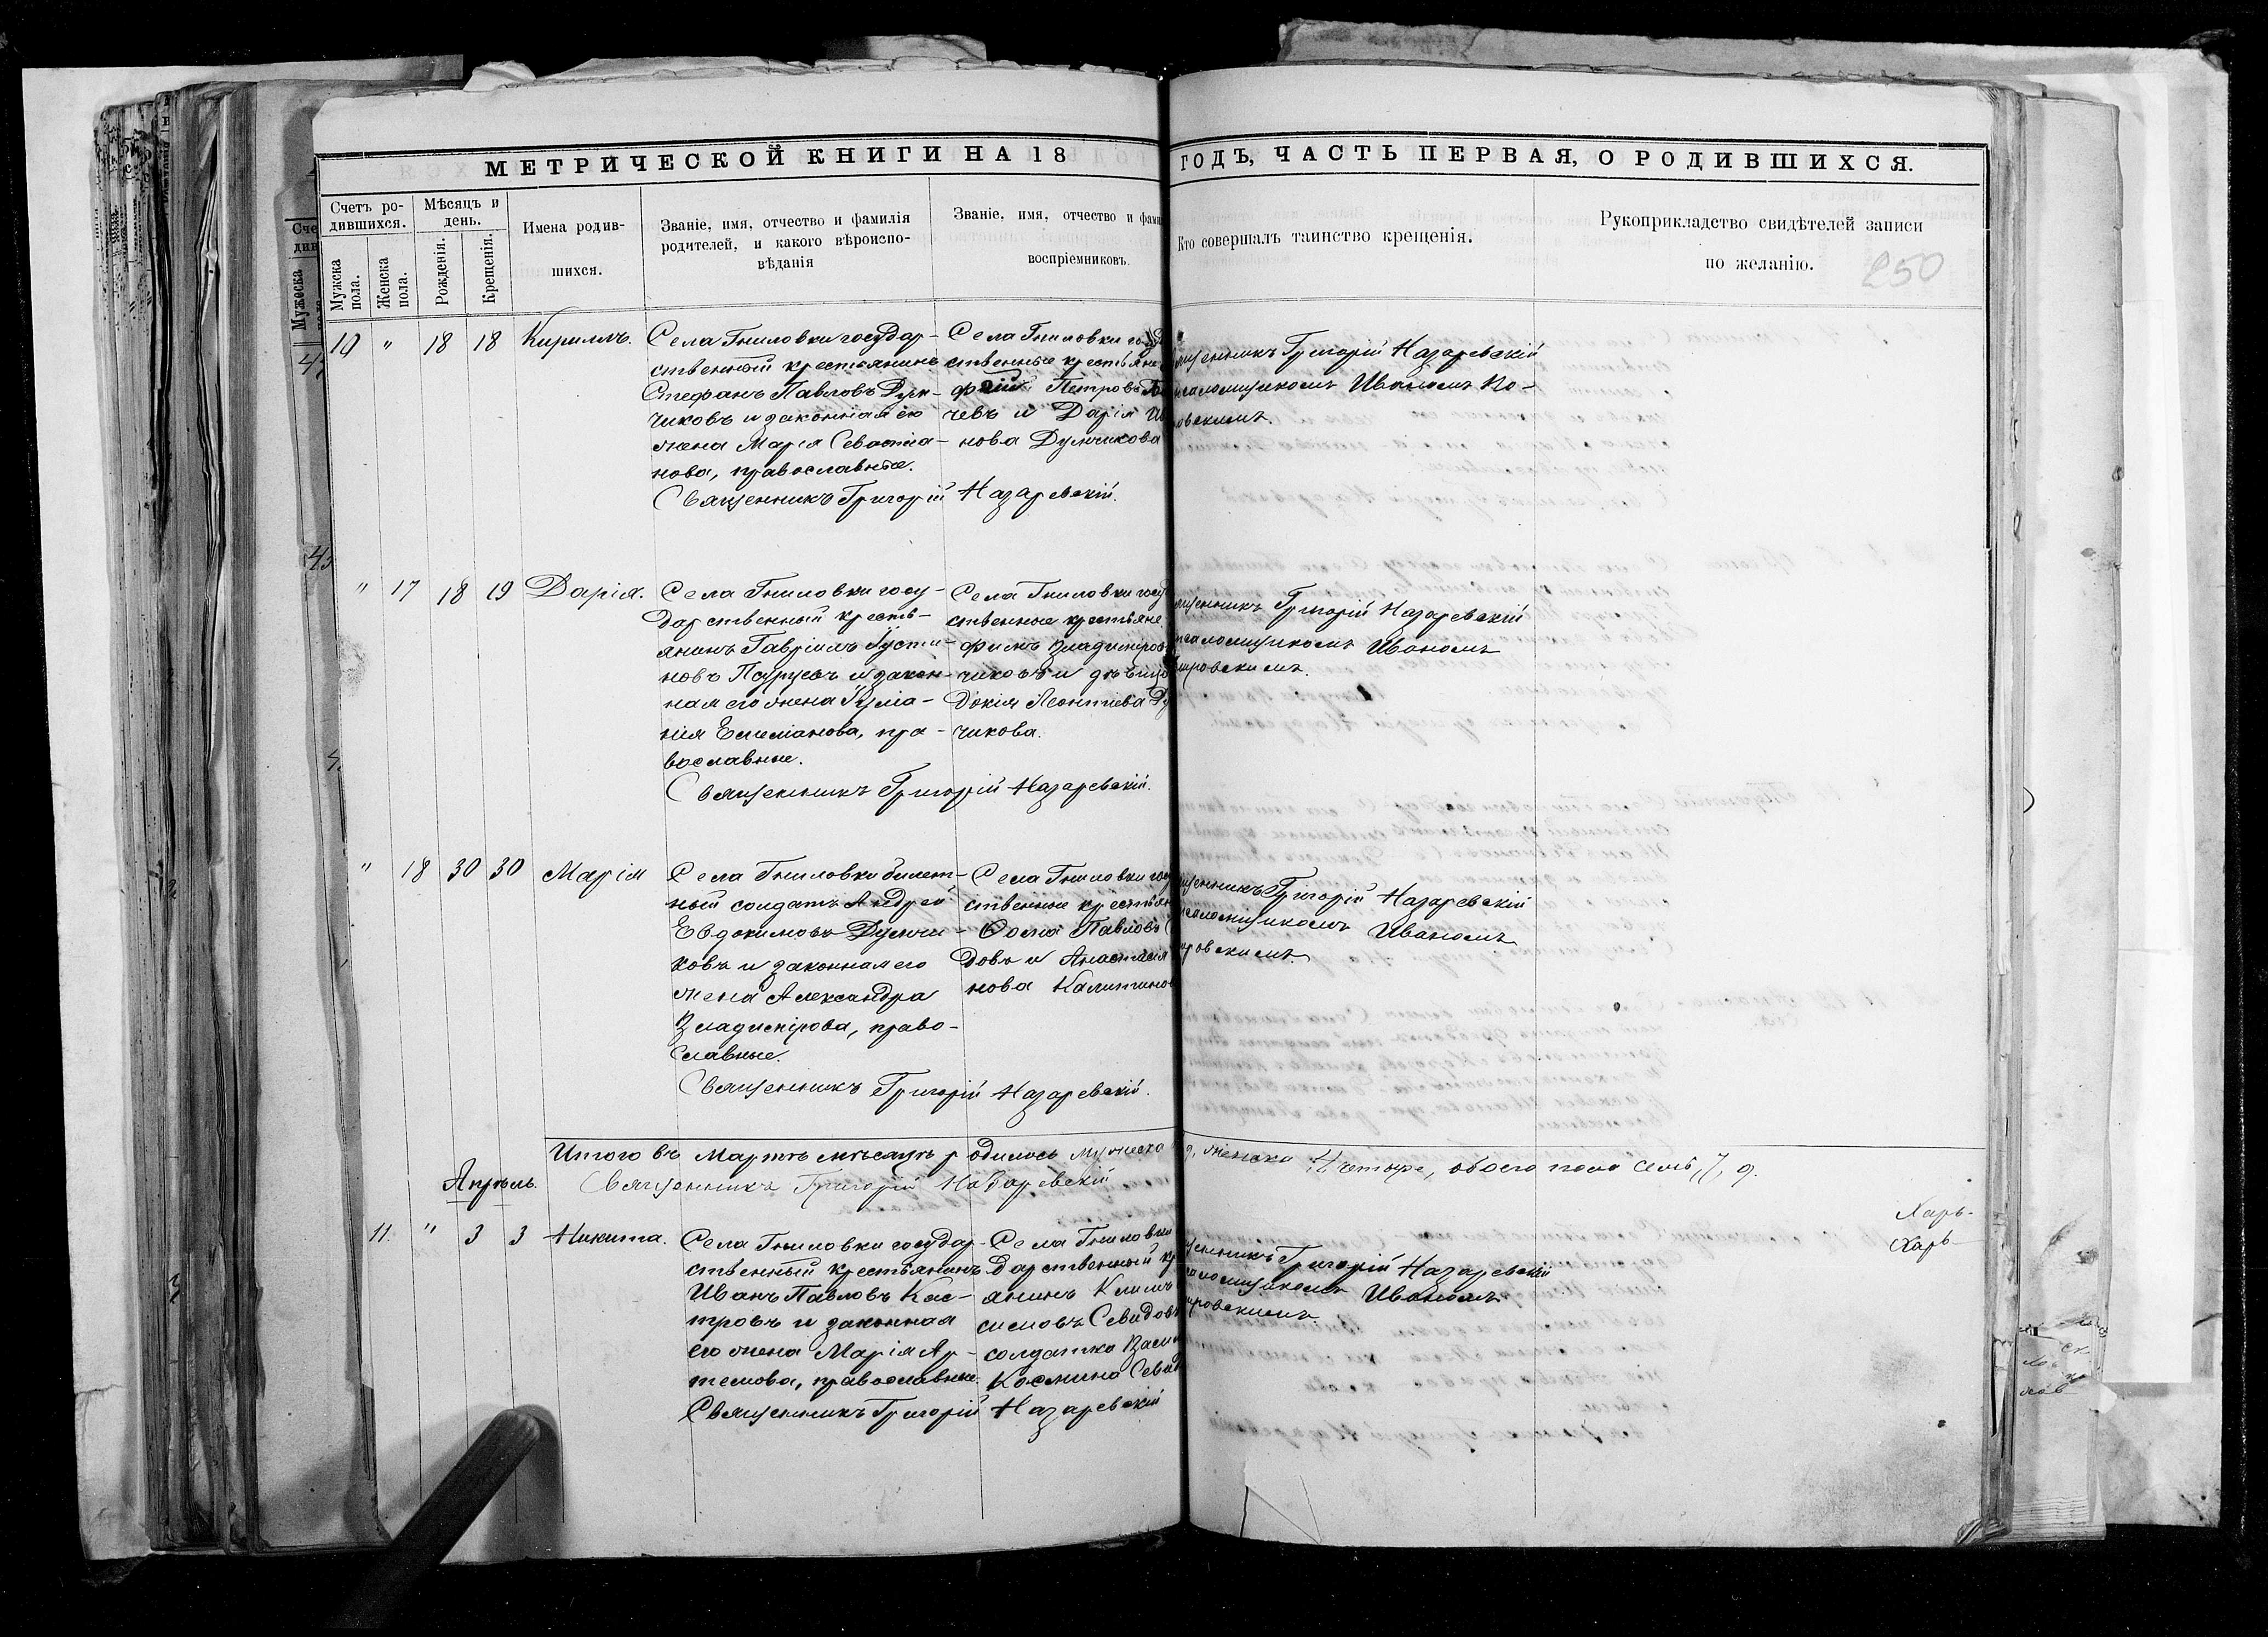 МЕТРИЧЕСКОЙ КНИГИ НА 18 ГОДЪ, ЧАСТЬ ПЕРВАЯ, О РОДИВШИХСЯ.
Счетъ ро-
дившихся.
Мужска пола.
Женска пола.
Мѣсяцъ и день.
Рожденія.
Крещенія.
Имена родив-
шихся.
Званіе, имя, отчество и фамилія
родителей, и какого вѣроиспо-
вѣданія
Званіе, имя, отчество и фами
воспріемниковъ.
Кто совершалъ таинство крещенія.
Рукоприкладство свидѣтелей записи
по желанію.
250
10 " 18 18 Кириллъ.
Села Гниловки государ-
ственный крестьянинъ
Стефанъ Павловъ Дум-
чиковъ и законная его
жена Марія Севастіа-
нова, православные.
Священникъ Григорій Назаревскій.
Села Гниловки
ственные крестьяне
Петровъ
чевъ и Дарія
нова Думчикова
щенникъ Григорій Назаревскій
псаломщикомъ Иваномъ
овскимъ.
" 17 18 19 Дарія.
Села Гниловки госу-
дарственный кресть-
янинъ Гавріилъ Іусти-
новъ и закон-
ная его жена Іуліа-
нія Емеліанова, пра-
вославные.
Священникъ Григорій Назаревскій.
Села Гниловки госуд
ственные крестьяне
фимъ Владиміров
чиковъ и дѣвица
докія Леонтіева Ду
чикова.
щенникъ Григорій Назаревскій
псаломщикомъ Иваномъ
ировскимъ.
" 18 30 30 Марія
Села Гниловки билет-
ный солдатъ Андрей
Евдокимовъ Думчи-
ковъ и законная его
жена Александра
Владимірова, право-
славные.
Священникъ Григорій Назаревскій.
Села Гниловки госу
ственные крестьян
Ѳома Павловъ
довъ и Анастасія
нова Калитинов
щенникъ Григорій Назаревскій
псаломщикомъ Иваномъ
ировскимъ.
Итого въ Мартѣ мѣсяцѣ родилось мужеска женска четыре, обоего пола семь, 7,
Священникъ Григорій Назаревскій
Апрѣль.
11. " 3 3 Никита.
Села Гниловки государ-
ственный крестьянинъ
Иванъ Павловъ Кас-
тровъ и законная
его жена Марія Ар-
темова, православные.
Священникъ Григорій Назаревскій
Села Гниловки
дарственный кр
янинъ Климъ
симовъ Севидовъ
солдатка Васи
Космина Севид
щенникъ Григорій Назаревскій
псаломщикомъ Иваномъ
ировскимъ
Харь-
Харь-